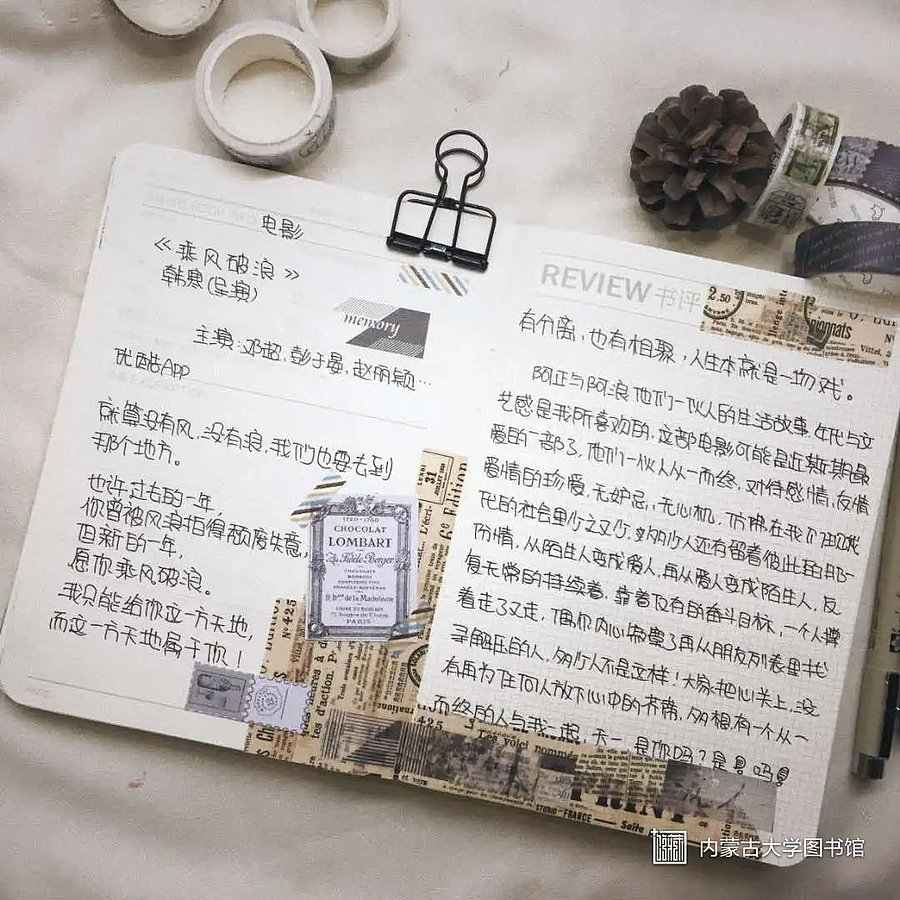 电影
《乘风破浪》
韩寒(导演)
memory
主演：邓超，彭于晏，赵丽颖…
优酷App
就算没有风，没有浪，我们也要去到
那个地方。
也许过去的一年，
你曾被风浪拍得颓废失意，
但新的一年，
愿你乘风破浪。
我只能给你这一方天地，
而这一方天地属于你！
1760-1760
CHOCOLAT
LOMBART
PARIS
REVIEW 书评
2.50
有分离，也有相聚，人生本就是一场戏。
阿正与阿浪他们一伙人的生活故事，年代与文
艺感是我所喜欢的，这部电影可能是近期最
爱的一部了，他们一伙人从一而终，对待感情，友情
爱情的珍爱，无妒忌，无心机，仿佛在我们
代的社会里少之又少，多少人还有留着彼此的那一
份情，从陌生人变成爱人，再从爱人变成陌生人，反
复无常的持续着，靠着仅有的奋斗目标，一个人撑
着走了又走，偶尔内心
寻解压的人，多少人不是这样！大家把心关上，没
有再为任何人放下心中的芥蒂，多想有一个从一
而终的人与我一起，
是你吗？是
31
6e Edition
N° 425
425
Les voici nommés
STUDIO-FRANCE — Seite
内蒙古大学图书馆